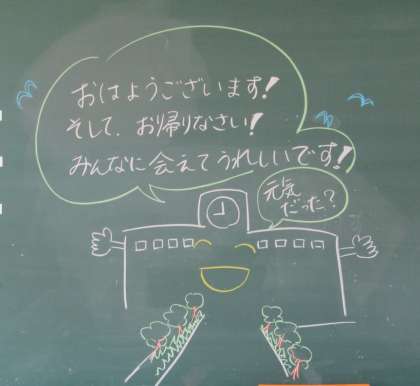 おはようございます!
そして、お帰りなさい!
みんなに会えてうれしいです!
元気
だった?